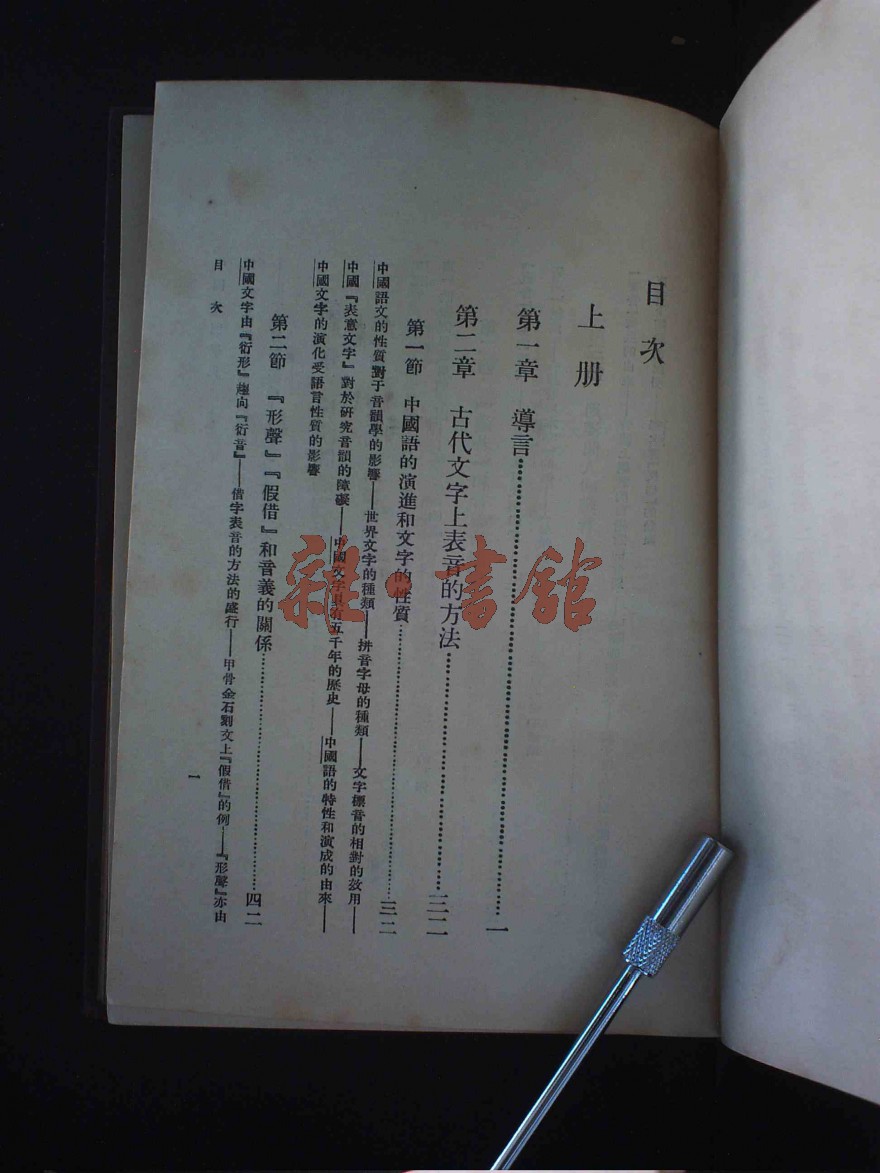 目次
上册
第一章 導言……一
第二章 古代文字上表音的方法……三二
第一節 中國語的演進和文字的性質……三二
中國語文的性質對于音韻學的影響——世界文字的種類——拼音字母的種類——文字標音的相對的效用——
中國『表意文字』對於研究音韻的障礙——中國文字具有五千年的歷史——中國語的特性和演成的由來——
中國文字的演化受語言性質的影響
第二節 『形聲』『假借』和音義的關係……四二
中國文字由『衍形』趨向『衍音』——借字表音的方法的盛行——甲骨金石刻文上『假借』的例——『形聲』亦由
目次
一
雜·書館